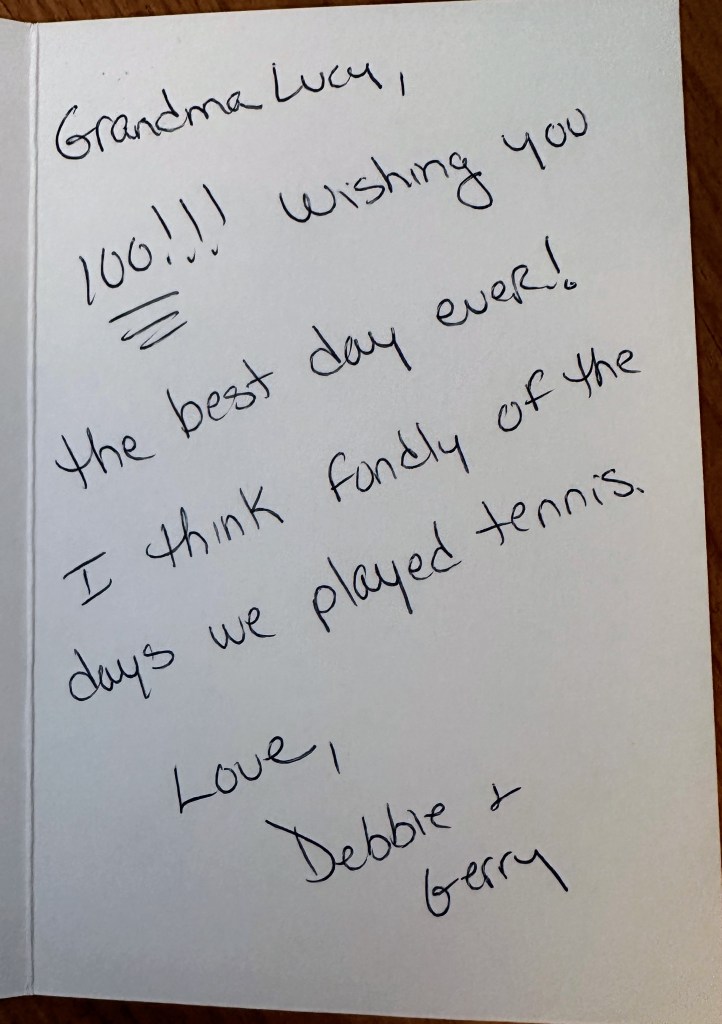 Grandma Lucy,
100!!! Wishing you
the best day ever!
I think fondly of the
days we played tennis.
Love,
Debbie &
Gerry